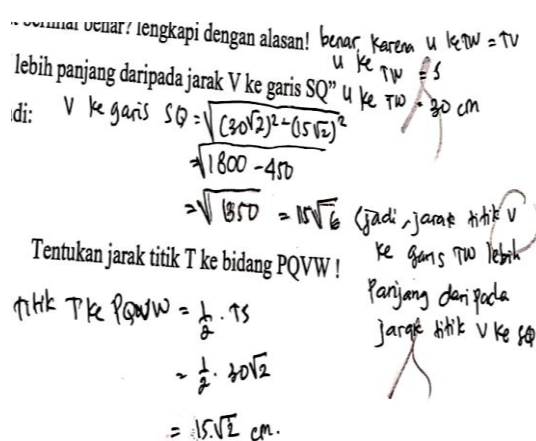 benar? lengkapi dengan alasan! benar, karena U ke TW = TV
U ke TW = S
lebih panjang daripada jarak V ke garis SQ" U ke TW = 30 cm
di: V ke garis SQ = √(30√2)² - (15√2)²
= √1800 - 450
= √1350 = 15√6 (jadi, jarak titik V
ke garis TW lebih
panjang daripada
jarak titik V ke SQ
Tentukan jarak titik T ke bidang PQVW !
titik T ke PQVW = 1/2 . TS
= 1/2 . 30√2
= 15√2 cm.